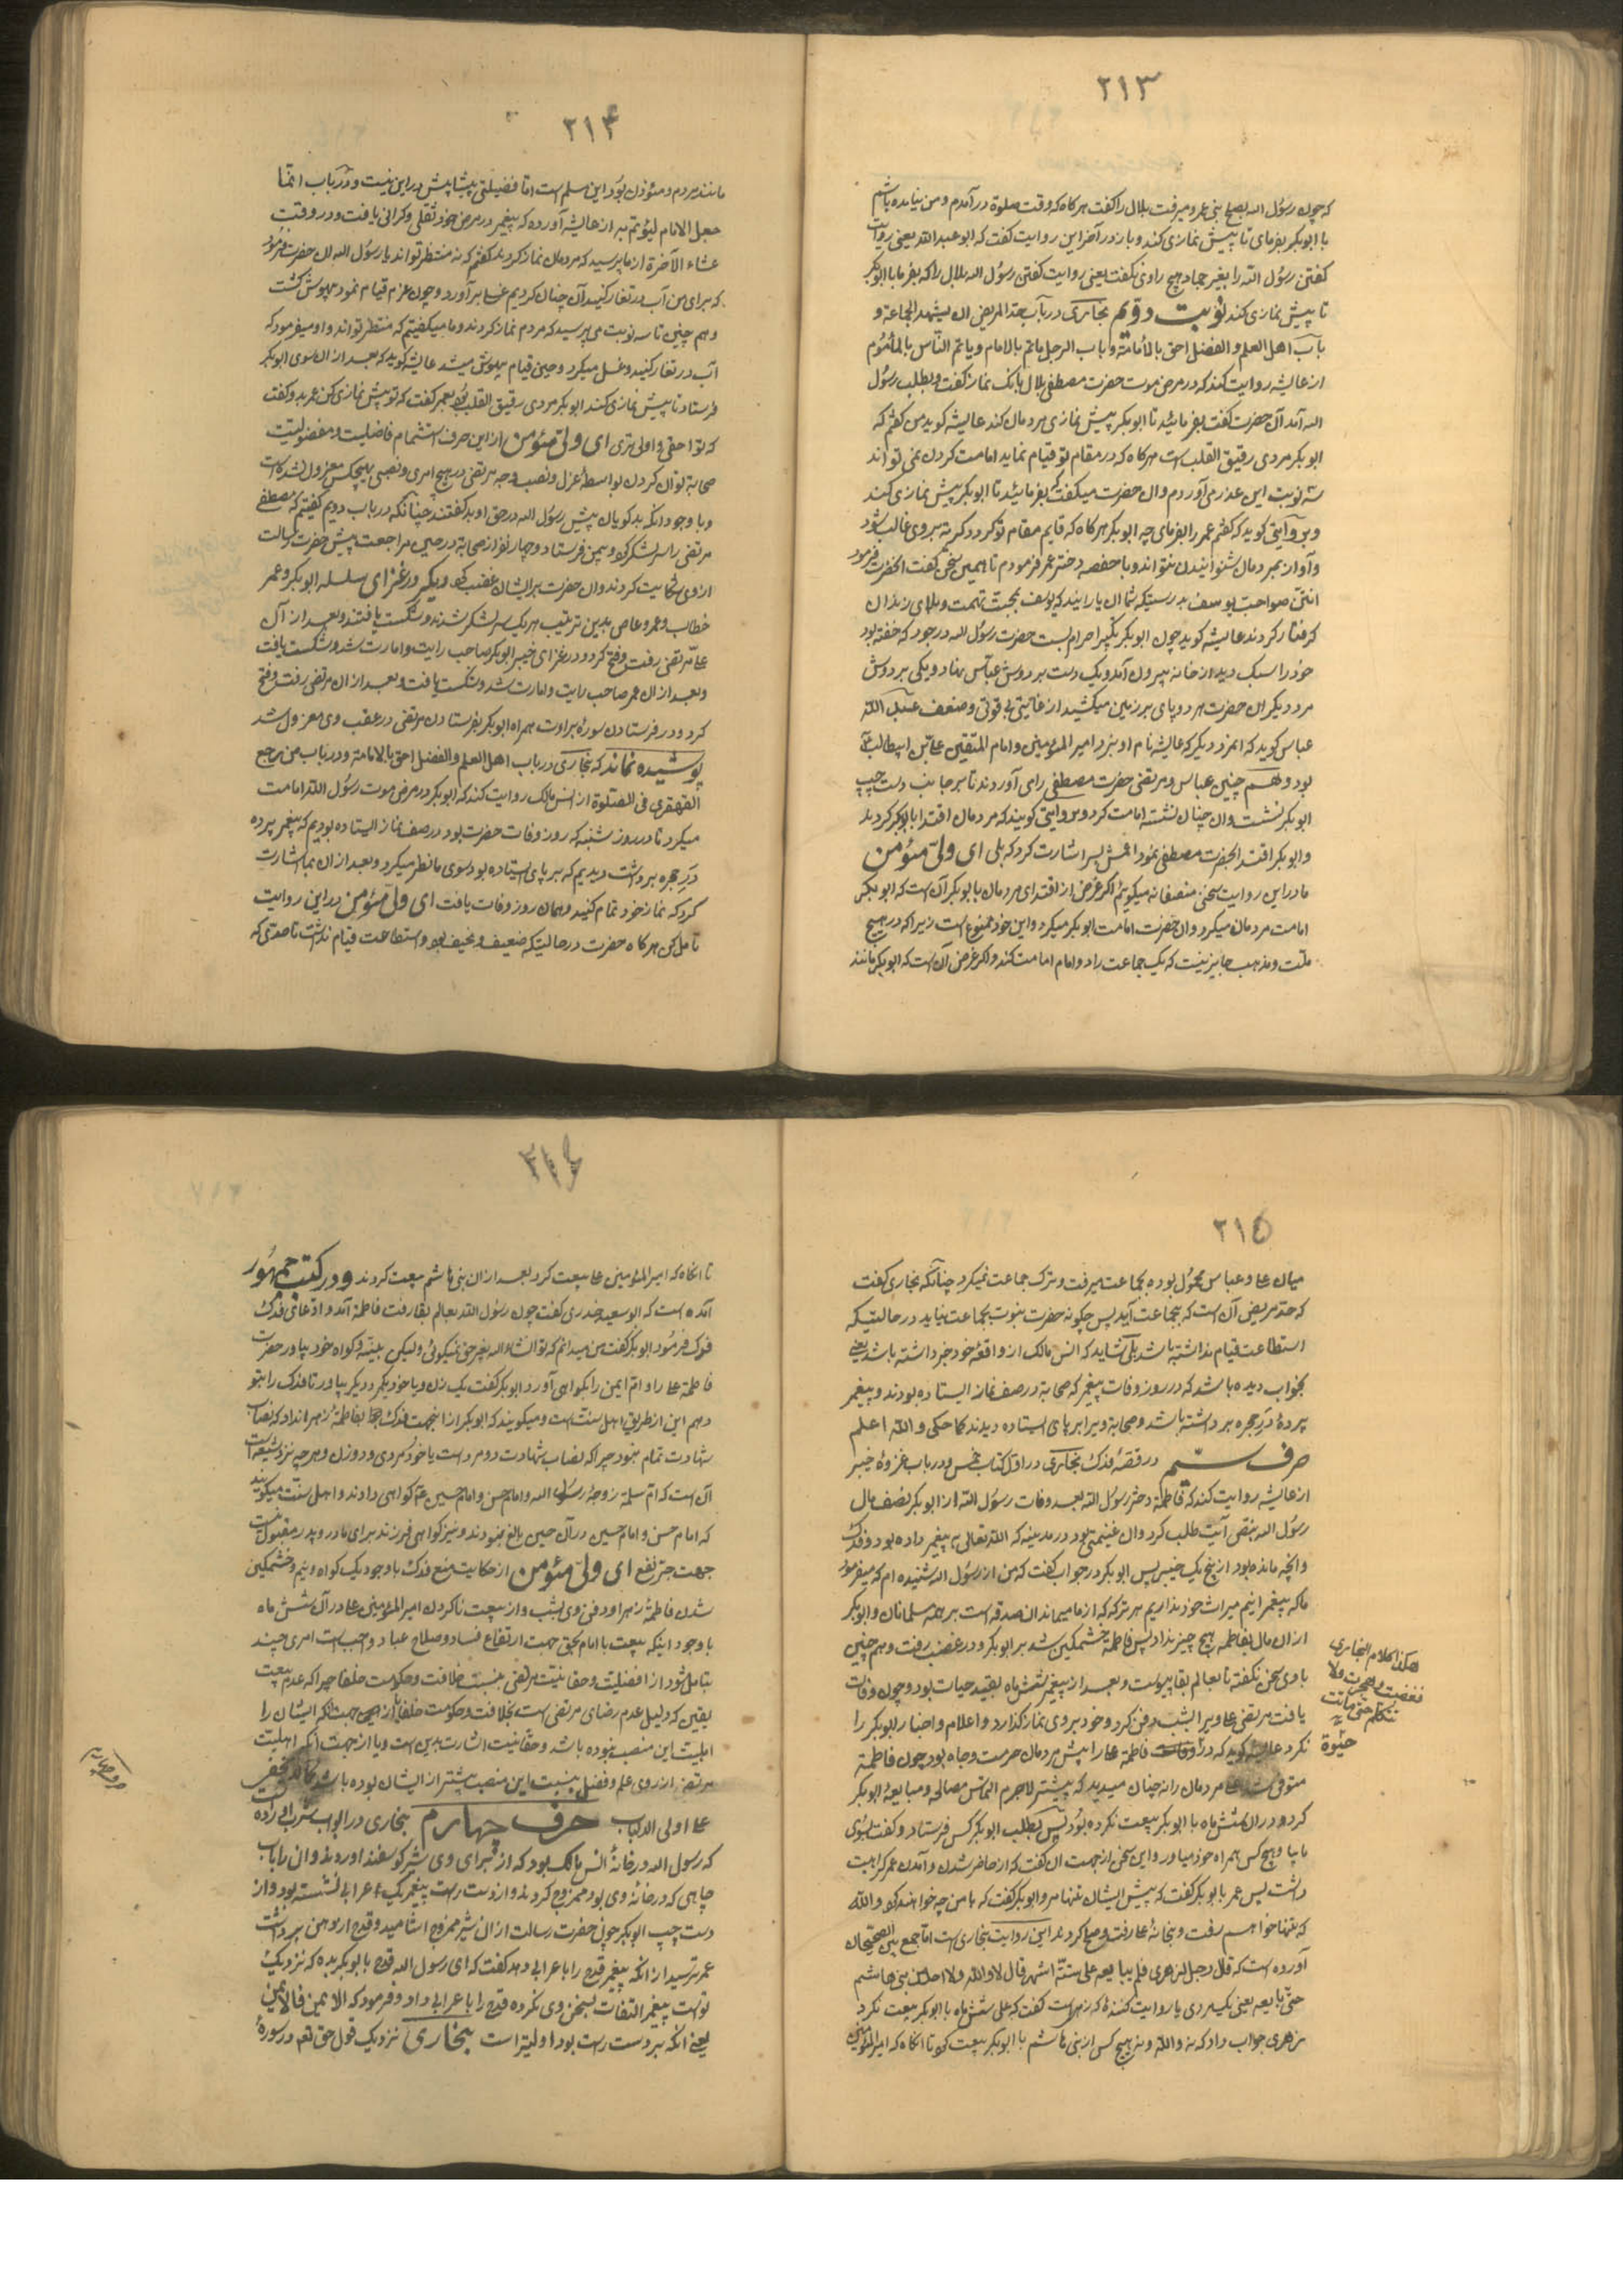 ٢١٣
که چون رسول الله بصلح بنی عمرو میرفت بلال را گفت هرکاه که وقت صلوة درآمدم و من نیامده باشم
با ابوبکر بفرمای تا پیش نمازی کند و باز در آخر این روایت گفت که ابو عبدالله یعنی روایت
کفتن رسول الله را بغیر حماد هیچ راوی نکفت یعنی روایت کفتن رسول الله بلال را که بفرما با ابوبکر
تا پیش نمازی کند نوبت دویم بخاری در باب حد المریض ان یشهد الجماعة و
باب اهل العلم و الفضل احق بالأمامة و باب الرجل یاتم بالامام و یاتم الناس بالمأموم
از عایشه روایت کند که در مرض موت حضرت مصطفی بلال بانک نماز کفت و بطلب رسول
الله آمد آن حضرت کفت بفرمائید تا ابوبکر پیش نمازی مردمان کند عایشه کوید من کفتم که
ابوبکر مردی رقیق القلب است هرکاه که در مقام تو قیام نماید امامت کردن نمی تواند
سه نوبت این عذر می آوردم و ان حضرت میکفت که بفرمائید تا ابوبکر پیش نمازی کند
و بروایتی کوید که کفتم عمر را بفرمای چه ابوبکر هرکاه که قایم مقام تو کردد کریه بر وی غالب شود
و آواز بمردمان شنوانیدن نتواند و با حفصه دختر عمر فرمودم تا همین سخن کفت انحضرت فرمود
انتن صواحب یوسف بدرستیکه شما ان یارانید که یوسف بمحبت تهمت و بلای زندان
کرفتار کردند عایشه کوید چون ابوبکر تکبیر احرام بست حضرت رسول الله در جود که خفته بود
خود را سبک دید از خانه بیرون آمد و یک دست بر دوش عباس نهاد و یکی بر دوش
مرد دیکر ان حضرت هر دو پای بر زمین میکشید از غایتی بی قوتی و ضعف عبد الله
عباس کوید که انمرد دیکر که عایشه نام او نبرد امیر المؤمنین و امام المتقین علی بن ابیطالب
بود و هم چنین عباس و مرتضی حضرت مصطفی را می آوردند تا بر جانب دست چپ
ابوبکر نشست و ان چنان نشسته امامت کرد و بروایتی کویند که مردمان اقتدا بابوبکر کردند
و ابوبکر اقتدا بحضرت مصطفی نمود اعمش بسر اشارت کرد که بلی ای ولی مؤمن
ما در این روایت سخن منصفانه میکوئیم اکر غرض از اقتدای مردمان بابوبکر آن است که ابوبکر
امامت مردمان میکرد و ان حضرت امامت ابوبکر میکرد و این خود ممنوع است زیرا که در هیچ
ملت و مذهب جایز نیست که یک جماعت را دو امام امامت کند و اکر غرض آن است که ابوبکر مانند
٢١۴
مانند مردم و مؤذن بود این مسلم است اما فضیلتی بیشاپیش در این نیست و در باب انما
جعل الامام لیؤتم به از عایشه آورده که پیغمبر در مرض خود ثقلی و کرانی یافت و در وقت
عشاء الآخرة از ما پرسید که مردمان نماز کردند کفتم که نه منتظر تواند یا رسول الله ان حضرت فرمود
که برای من آب در تغار کنید آن چنان کردیم غسل برآورد و چون عزم قیام نمود بیهوش کشت
و هم چنین تا سه نوبت می پرسید که مردم نماز کردند و ما میکفتیم که منتظر تواند و او میفرمود که
آب در تغار کنید و غسل میکرد و حین قیام بیهوش میشد عایشه کوید که بعد از ان سوی ابوبکر
فرستاد تا پیش نمازی کند ابوبکر مردی رقیق القلب بود بعمر کفت که تو پیش نمازی کن عمر بدو کفت
که تو احق و اولی تری ای ولی مؤمن از این حرف استشمام فاضلیت و مفضولیت
صحابه توان کردن بواسطه عزل و نصب و جه مرتضی در هیچ امری و نصبی بهیچکس معزول نشده است
و با وجود انکه بدکویان پیش رسول الله در حق او بد کفتند چنانکه در باب دویم کفتیم که مصطفی
مرتضی را سر لشکر کرده و بیمن فرستاد و چهار نفر از صحابه در حین مراجعت پیش حضرت رسالت
از وی شکایت کردند و ان حضرت بر ایشان غضب کرد و دیگر در غزای سلسله ابوبکر و عمر
خطاب و عمرو عاص بدین ترتیب هر یک سر لشکر شدند و شکست یافتند و بعد از آن
علی مرتضی رفت و فتح کرد و در غزای خیبر ابوبکر صاحب رایت و امارت شد و شکست یافت
و بعد از ان عمر صاحب رایت و امارت شد و شکست یافت و بعد از ان مرتضی رفت و فتح
کرد و در فرستادن سوره براوت همراه ابوبکر بفرستادن مرتضی در عقب وی معزول شد
پوشیده نماند که بخاری در باب اهل العلم و الفضل احق بالامامة و در باب من رجع
القهقری فی الصلوة از انس مالک روایت کند که ابوبکر در مرض موت رسول الله امامت
میکرد تا در روز شنبه که روز وفات حضرت بود در صف نماز ایستاده بودیم که پیغمبر پرده
در حجره برداشت دیدیم که بر پای ایستاده بود سوی ما نظر میکرد و بعد از ان بما اشارت
کرد که نماز خود تمام کنید و همان روز وفات یافت ای ولی مؤمن در این روایت
تامل کن هرکاه حضرت در حالیتکه ضعیف و نحیف بود و استطاعت قیام نداشت تا حدی که
٢١٥
میان علی و عباس محمول بوده بجماعت میرفت و ترک جماعت نمیکرد چنانکه بخاری کفت
که حد مریض آن است که بجماعت آید پس چکونه حضرت نبوت بجماعت نیاید در حالتیکه
استطاعت قیام نداشته باشد بلکی شاید که انس مالک از واقعه خود خبر داشته باشد یعنی
بخواب دیده باشد که در روز وفات پیغمبر که صحابه در صف نماز ایستاده بودند و پیغمبر
پرده در حجره برداشته باشد و صحابه ویرا بر پای ایستاده دیدند کما حکی و الله اعلم
حرف سیّم در قصه فدک بخاری در اول کتاب خمس و در باب غزوه خیبر
از عایشه روایت کند که فاطمة دختر رسول الله بعد وفات رسول الله از ابوبکر نصف مال
رسول الله بنقض آیت طلب کرد و ان غنیمتی بود در مدینه که الله تعالی به پیغمبر داده بود و فدک
و انچه مانده بود از پنج یک خیبر پس ابوبکر در جواب کفت که من از رسول الله شنیده ام که میفرمود
ما که پیغمبرانیم میراث خود نداریم هر ترکه که از ما میماند ان صدقه است بر همه مسلمانان و ابوبکر
از ان مال بفاطمه هیچ چیز نداد پس فاطمة خشمکین شد بر ابوبکر و در غضب رفت و هم چنین
با وی سخن نکفته تا بعالم بقا پیوست و بعد از پیغمبر شش ماه بقیدحیات بود و چون وفات
یافت مرتضی علی ویرا بشب دفن کرد و خود بر وی نماز کذارد و اعلام و اخبار ابوبکر را
نکرد عایشه کوید که در وفات فاطمه علی را پیش مردمان حرمت و جاه بود چون فاطمة
متوفی شد علی مردمان را نه چنان میدید که پیشتر لاجرم التماس مصالحه و مبایعه ابوبکر
کرد و در ان شش ماه با ابوبکر بیعت نکرده بود پس بطلب ابوبکر کس فرستاد و کفت بسوی
ما بیا و هیچ کس همراه خود میاور و این سخن از جهت ان کفت که از حاضر شدن و آمدن عمر کراهیت
داشت پس عمر با بوبکر کفت که پیش ایشان تنها مرو ابوبکر کفت که با من چه خواهند کرد و الله
که تنها خواهم رفت و بخانه علی رفت و صلح کردند این روایت بخاری است اما جمع بین الصحیحان
آورده است که قال رجل للزهری فلم یبایعه علی ستة اشهر قال لا و الله و لا احد من بنی هاشم
حتی بایعه یعنی یک مردی یا روایت کننده که زهری است کفت که علی شش ماه با ابوبکر بیعت نکرد
زهری جواب داد که نه و الله و نه هیچ کس از بنی هاشم با ابوبکر بیعت کرد تا انکاه که امیر المؤمنین
هکذا کلام البخاری
فغضبت و هجرت فلا
تتکلم حتی ماتت
حیوة
تا انکاه که امیر المؤمنین علی بیعت کرد بعد از ان بنی هاشم بیعت کردند و در کتب جمهور
آمده است که ابو سعید خدری کفت چون رسول الله بعالم بقا رفت فاطمة آمد و ادعای فدک
فرمود ابوبکر کفت من میدانم که تو انشاء الله بغیر حق نمیکوئی ولیکن بینه و کواه خود بیاور حضرت
فاطمة علی را و ام ایمن را بکواهی آورد ابوبکر کفت یک زن و یا خود یکمرد دیکر بیاور تا فدک را بتو
دهم این از طریق اهل سنت است و میکویند که ابوبکر از اینجهت فدک بفاطمه زهرا نداد که نصاب
شهادت تمام نبود چرا که نصاب شهادت دو مرد است یا خود مردی و دو زن و هر چه نزد شیعه است
آن است که ام سلمه زوجه رسول الله و امام حسن و امام حسین هم کواهی دادند و اهل سنت میکویند
که امام حسن و امام حسین در آن حین بالغ نبودند و نیز کواهی فرزند برای مادر و پدر مقبول نیست
جهت جر نفع ای ولی مؤمن از حکایت منع فدک با وجود یک کواه و نیم و خشمکین
شدن فاطمه زهرا و دفن وی بشب و از بیعت ناکردن امیر المؤمنین علی در آن شش ماه
با وجود اینکه بیعت با امام بحق جهت ارتفاع فساد و صلاح عباد واجب است امری چند
بتامل شود از افضلیت و حقانیت مرتضی بنسبت خلافت و حکومت خلفا چرا که عدم بیعت
یقین که دلیل عدم رضای مرتضی است بخلافت و حکومت خلفا یا از جهت انکه ایشان را
اهلیت این منصب نبوده باشد و حقانیت اشارت بدین است و یا از جهت انکه اهلیت
مرتضی از روی علم و فضل بنسبت این منصب بیشتر از ایشان بوده باشد
علی اولی الالباب حرف چهارم بخاری در ابواب شرب آورده
که رسول الله در خانه انس مالک بود که از برای وی شیر کوسفند اوردند و ان را با آب
چاهی که در خانه وی بود ممزوج کردند و از دست راست پیغمبر یک اعرابی نشسته بود و از
دست چپ ابوبکر چون حضرت رسالت از ان شیر ممزوج اشامید و قدح از دهن برداشت
عمر ترسید از انکه پیغمبر قدح را باعرابی دهد کفت که ای رسول الله قدح بابوبکر بده که نزدیک
تو است پیغمبر التفات بسخن وی نکرده قدح را باعرابی داد و فرمود که الایمن فالایمن
یعنی انکه بر دست راست بود اولیتر است بخاری نزدیک قول حق تعالی در سوره